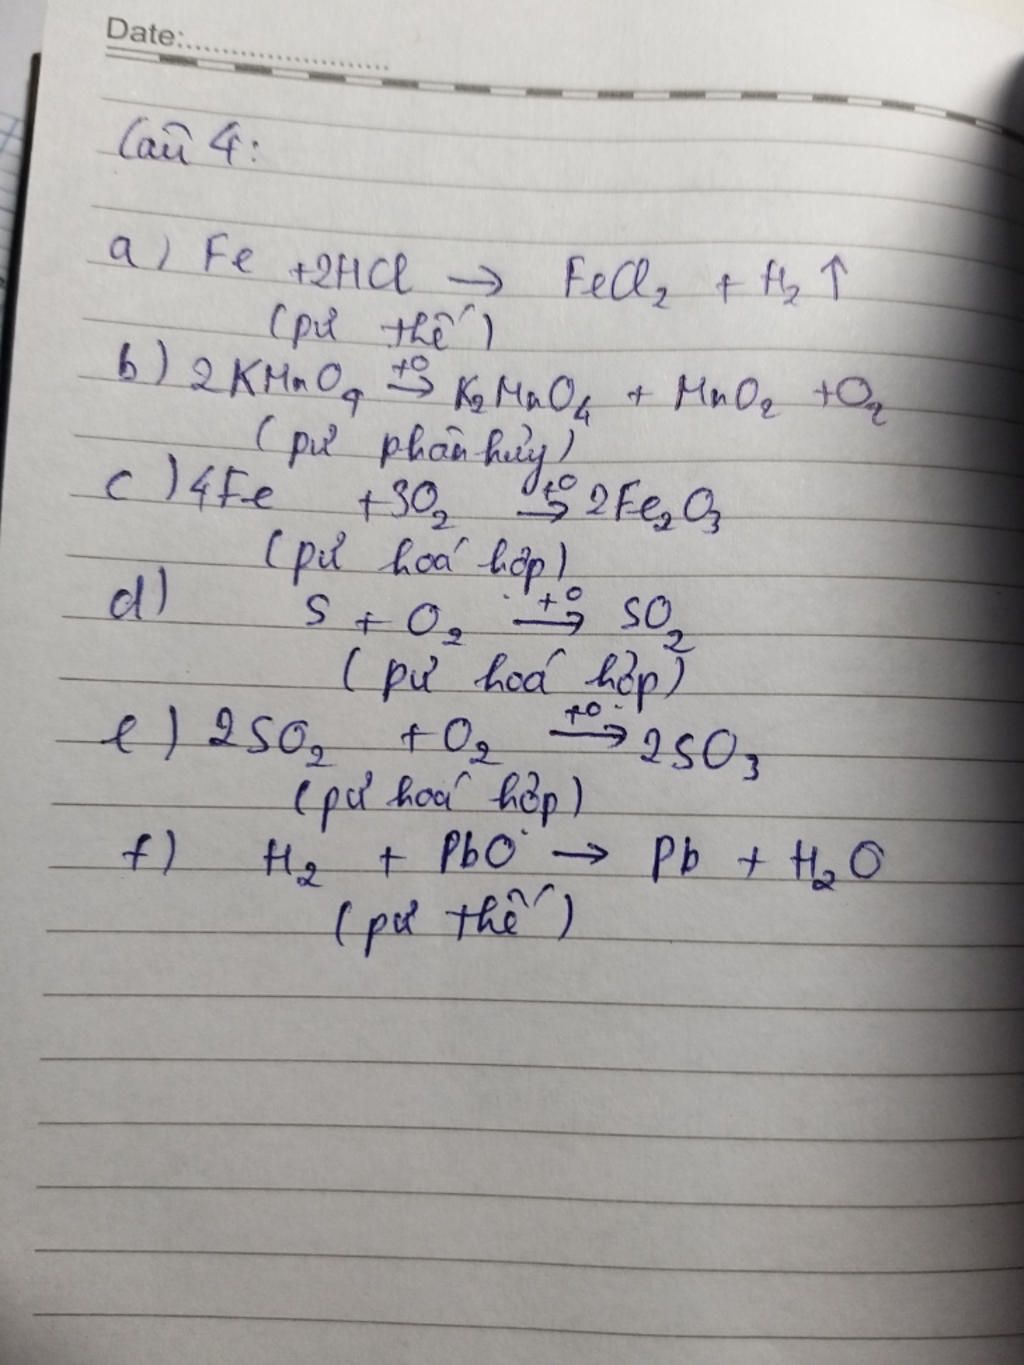 Date:
Câu 4:
a) Fe +2HCl → FeCl₂ + H₂ ↑
(pư thế)
b) 2KMnO₄ +o → K₂MnO₄ + MnO₂ +O₂
(pư phân hủy)
c) 4Fe +3O₂ +o → 2Fe₂O₃
(pư hoá hợp)
d) S + O₂ +o → SO₂
(pư hoá hợp)
e) 2SO₂ +O₂ +o → 2SO₃
(pư hoá hợp)
f) H₂ + PbO → Pb + H₂O
(pư thế)